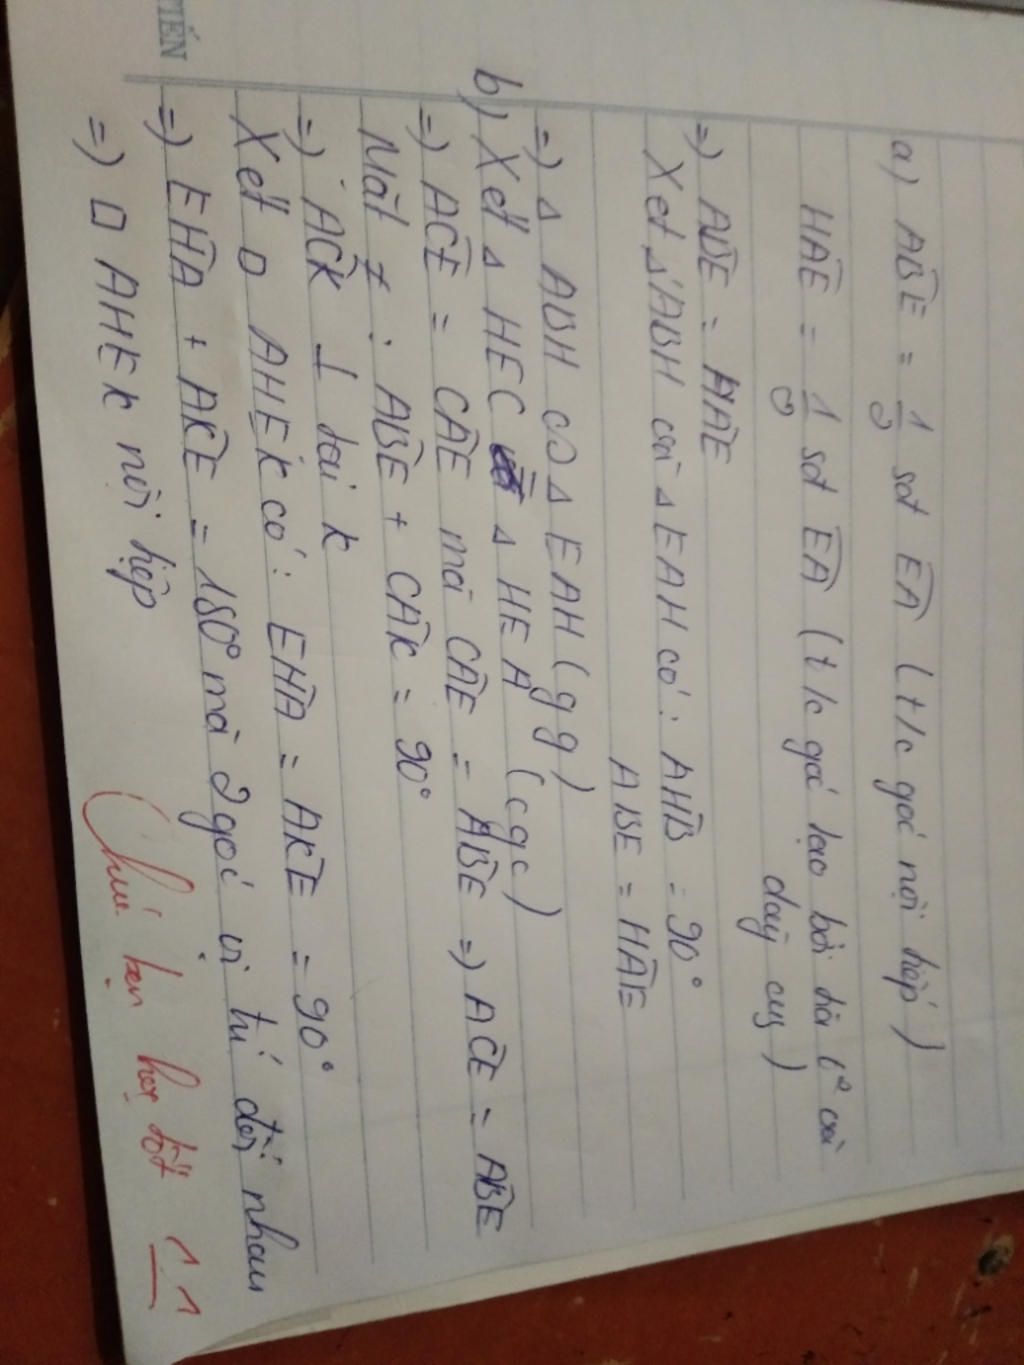 TIẾN
a) ABE = 1/2 sđ EA (t/c góc nội tiếp)
HAE = 1/2 sđ EA (t/c góc tạo bởi tia t² và
dây cung)
=> ABE = HAE
Xét Δ ABH và Δ EAH có: AHB = 90°
ABE = HAE
=> Δ ABH ∽ Δ EAH (gg)
b) Xét Δ HEC Δ HEA (cgc)
=> ACE = CAE mà CAE = ABE => ACE = ABE
Mặt ≠ : ABE + CAK = 90°
=> ACK ⊥ tại K
Xét □ AHEK có: EHA = AKE = 90°
=> EHA + AKE = 180° mà 2 góc vị trí đối nhau
=> □ AHEK nội tiếp
Chúc bạn học tốt ^^